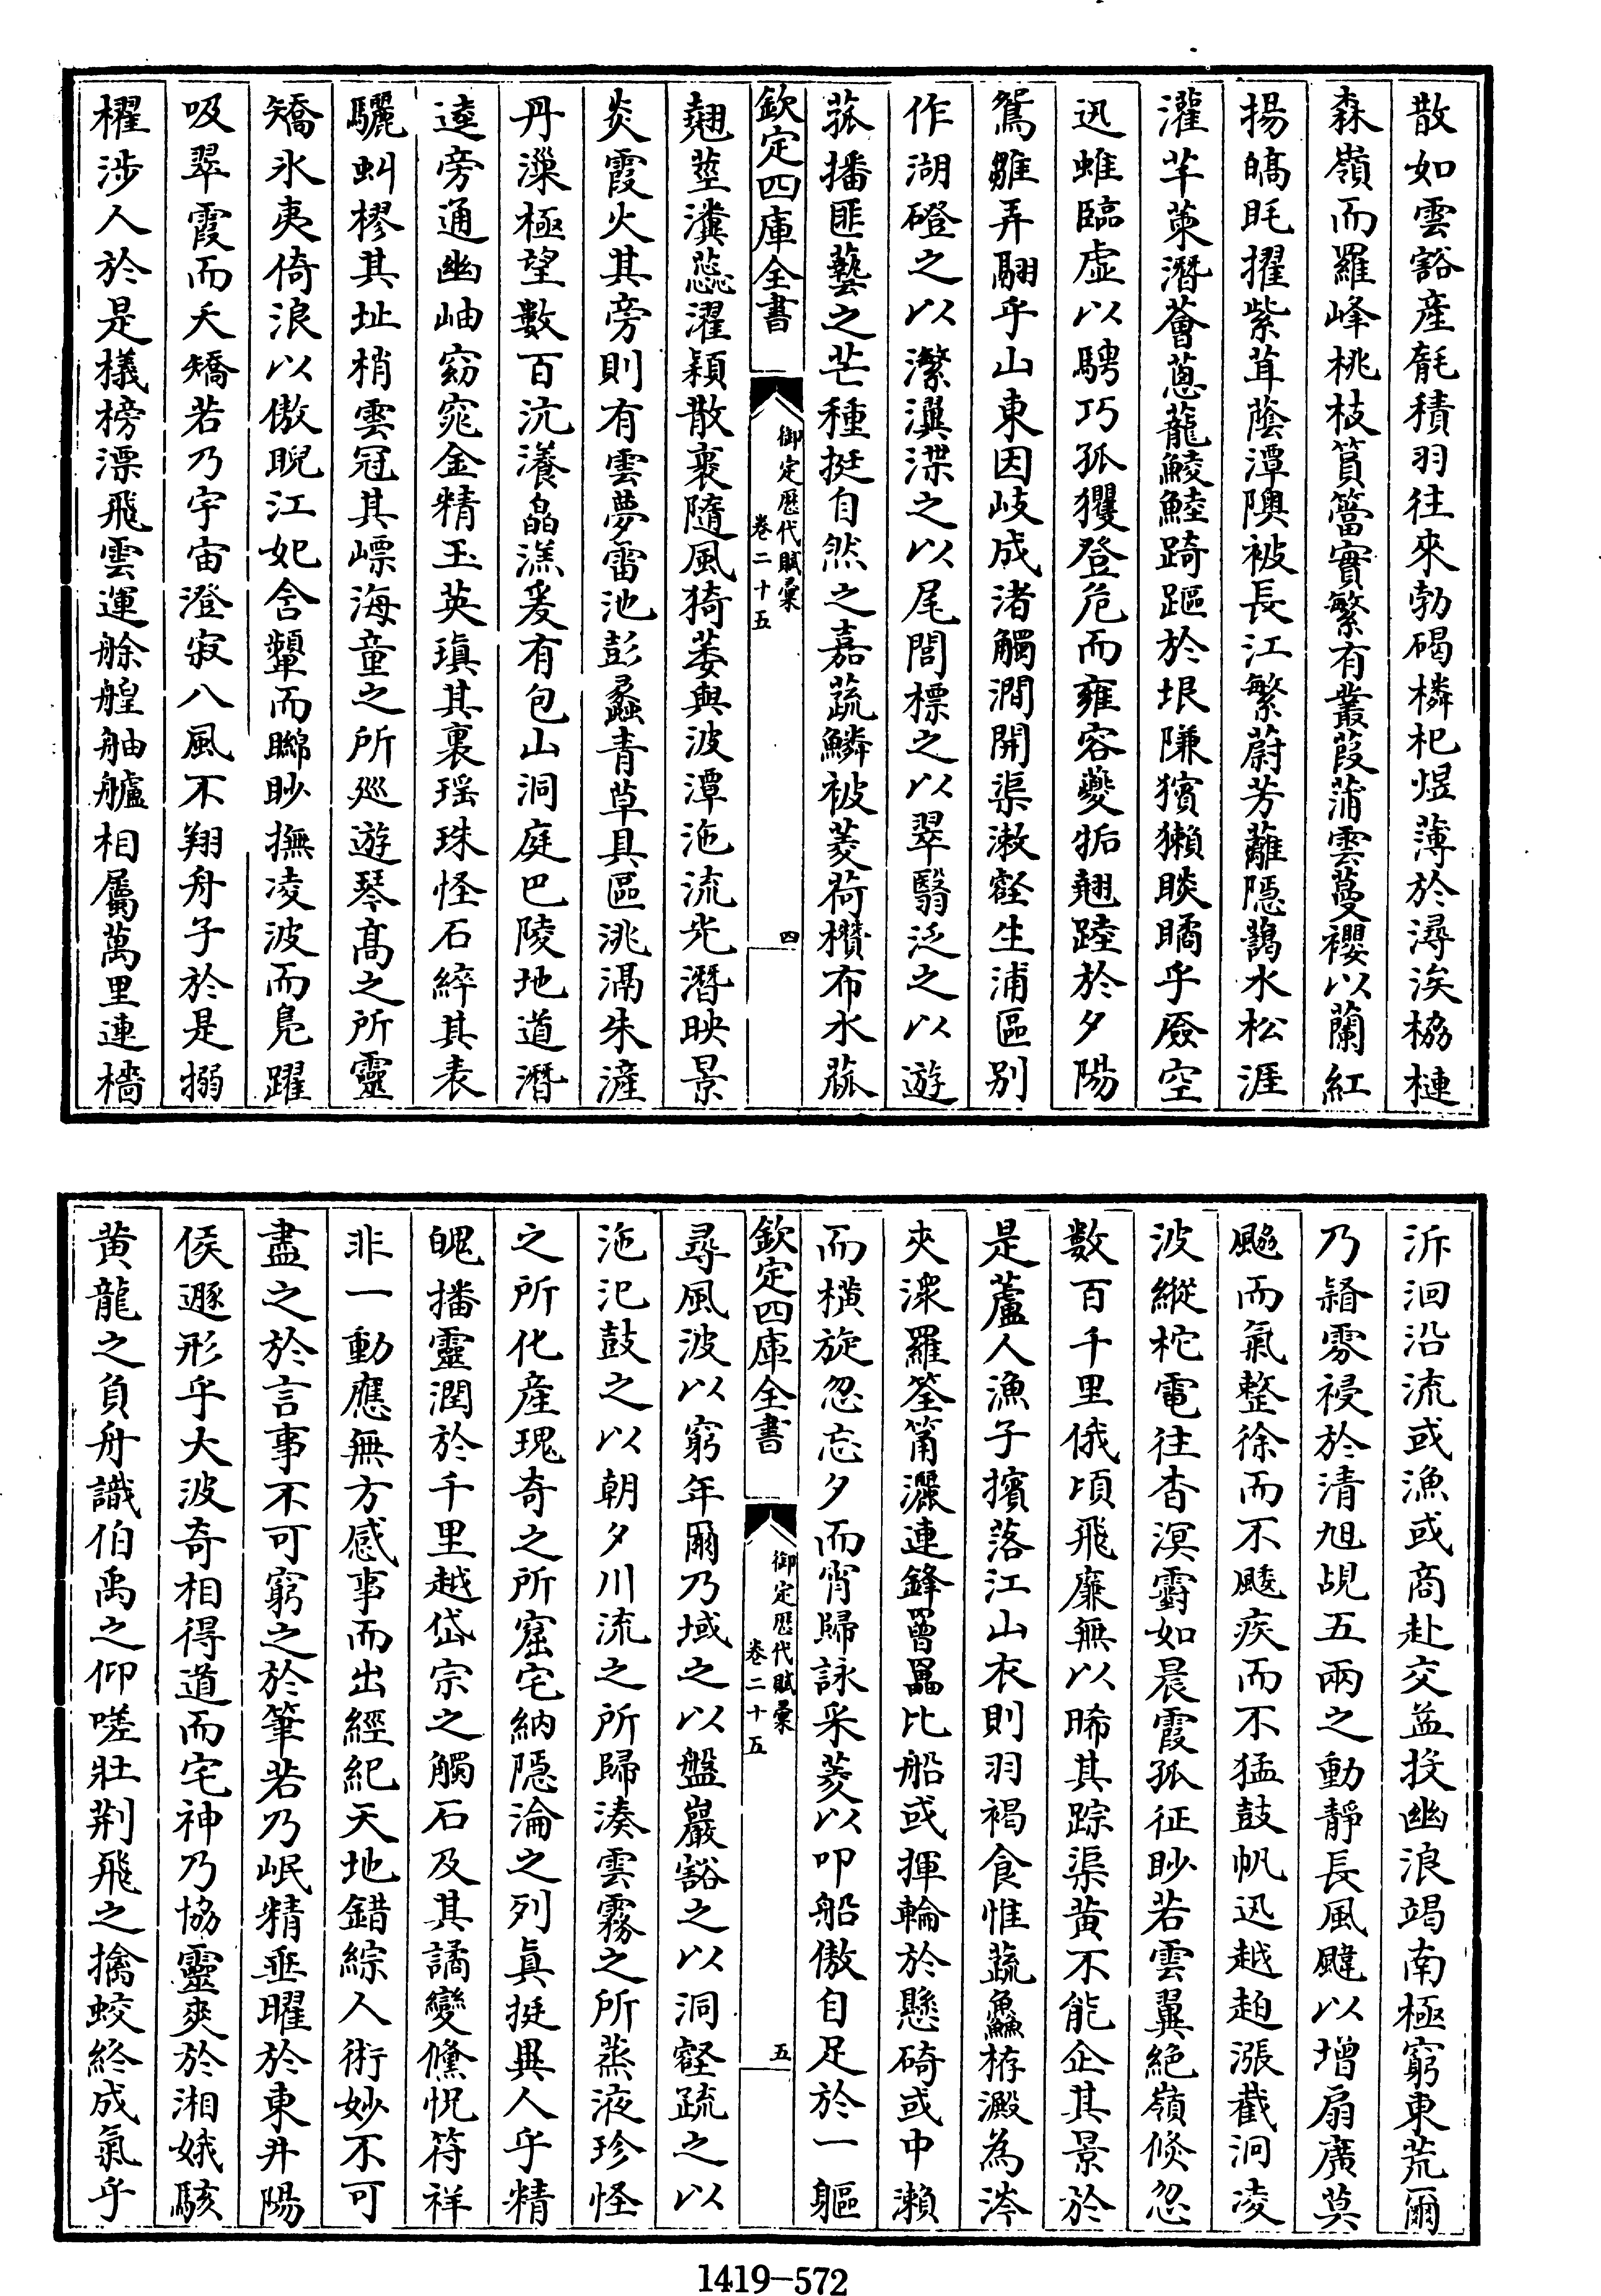 散如雲豁產毻積羽往來勃碣橉杞稹薄於潯涘栛槤
森嶺而羅峰桃枝篔簹實繁有叢葭蒲雲蔓櫻以蘭紅
揚皜毦擢紫茸蔭潭隩被長江繁蔚芳蘺隱藹水松涯
灌芊萰潛薈蔥蘢鯪鯥踦䟣於垠隒獱獺睒瞲乎厱空
迅蜼臨虛以騁巧孤玃登危而雍容夔㹔翹踛於夕陽
鴛雛弄翮乎山東因岐成渚觸澗開渠漱壑生浦區別
作湖磴之以瀿瀷渫之以尾閭標之以翠翳泛之以遊
菰播匪藝之芒種挺自然之嘉蔬鱗被菱荷攢布水蓏
欽定四庫全書
御定歷代賦彙
卷二十五
四
翹莖瀵蕊濯穎散裹隨風猗萎與波潭沲流光潛映景
炎霞火其旁則有雲夢雷池彭蠡青草具區洮滆朱滻
丹漅極望數百沆瀁皛溔爰有包山洞庭巴陵地道潛
逵旁通幽岫窈窕金精玉英瑱其裏瑤珠怪石綷其表
驪虯樛其址梢雲冠其嵿海童之所廵遊琴高之所靈
矯氷夷倚浪以傲睨江妃含顰而矊眇撫凌波而鳧躍
吸翠霞而夭矯若乃宇宙澄寂八風不翔舟子於是搦
櫂涉人於是檥榜漂飛雲運艅艎舳艫相屬萬里連檣
泝洄沿流或漁或商赴交益投幽浪竭南極窮東荒爾
乃䨪雰祲於清旭覘五兩之動靜長風颹以增扇廣莫
䬅而氣整徐而不䬐疾而不猛鼓帆迅越趠漲截泂凌
波縱柁電往杳溟䨴如晨霞孤征眇若雲翼絕嶺倏忽
數百千里俄頃飛廉無以睎其踪渠黃不能企其景於
是蘆人漁子擯落江山衣則羽褐食惟蔬鱻栫澱為涔
夾潨羅筌筩灑連鋒罾䍡比船或揮輪於懸碕或中瀨
而橫旋忽忘夕而宵歸詠采菱以叩船傲自足於一軀
欽定四庫全書
御定歷代賦彙
卷二十五
五
尋風波以窮年爾乃域之以盤巖豁之以洞壑疏之以
沲汜鼓之以朝夕川流之所歸湊雲霧之所蒸液珍怪
之所化產瑰奇之所窟宅納隱淪之列真挺異人乎精
魄播靈潤於千里越岱宗之觸石及其譎變儵怳符祥
非一動應無方感事而出經紀天地錯綜人術妙不可
盡之於言事不可窮之於筆若乃岷精垂曜於東井陽
侯遯形乎大波奇相得道而宅神乃協靈爽於湘娥駭
黃龍之負舟識伯禹之仰嗟壯荆飛之擒蛟終成氣乎
1419-572